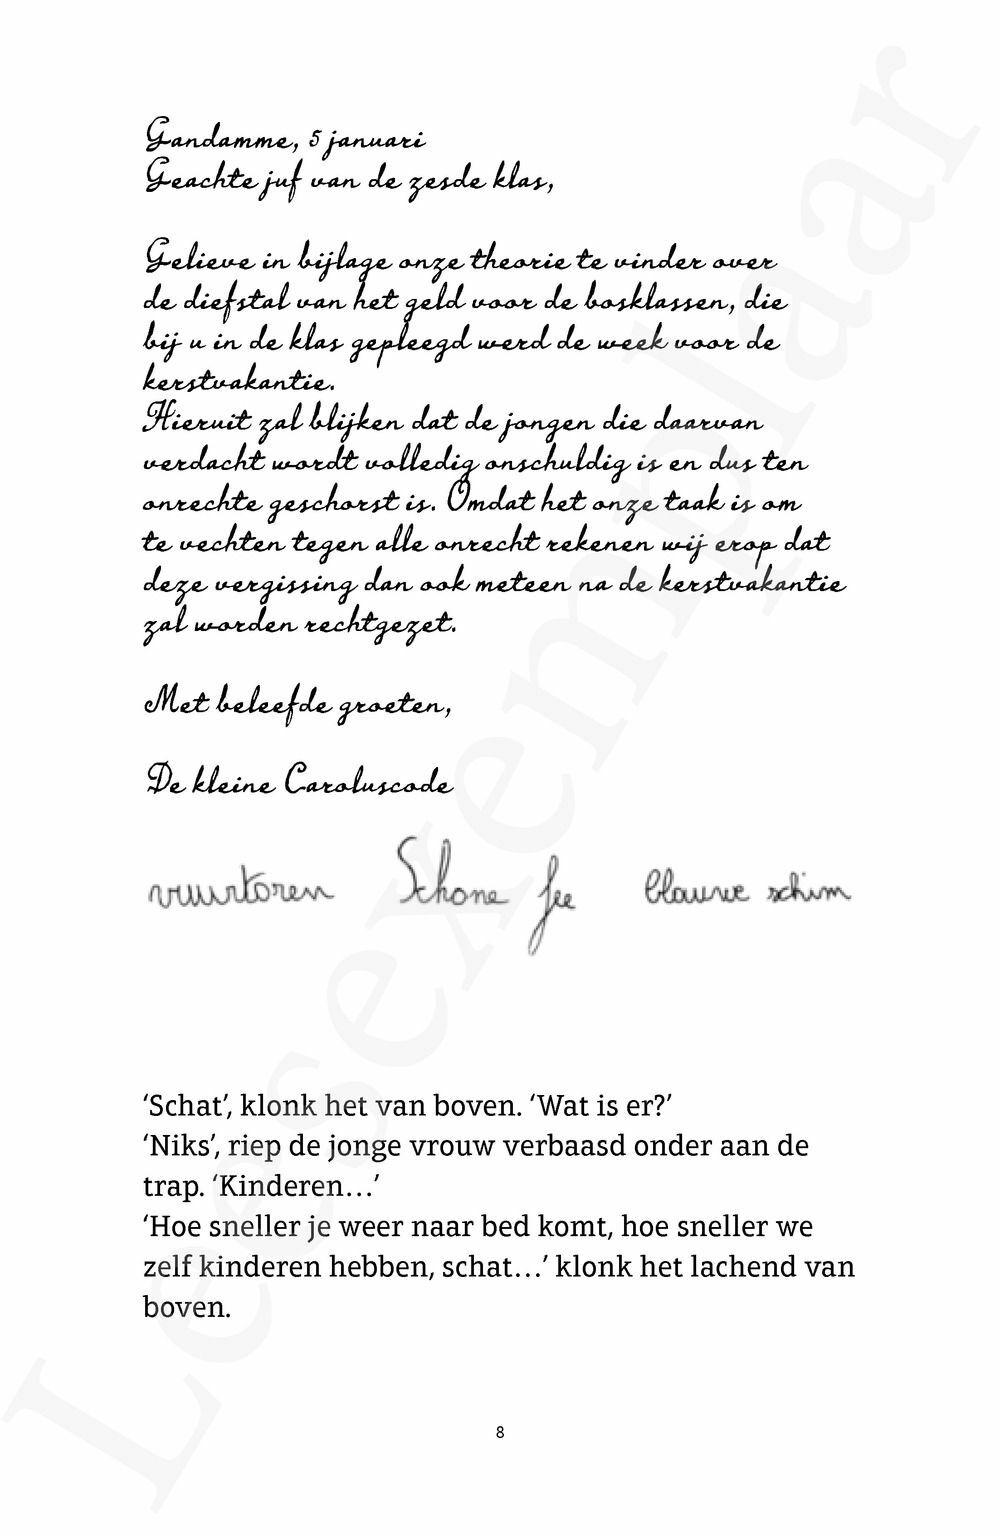 Gandamme, 5 januari
Geachte juf van de zesde klas,
Gelieve in bijlage onze theorie te vinder over
de diefstal van het geld voor de bosklassen, die
bij u in de klas gepleegd werd de week voor de
kerstvakantie.
Hieruit zal blijken dat de jongen die daarvan
verdacht wordt volledig onschuldig is en dus ten
onrechte geschorst is. Omdat het onze taak is om
te vechten tegen alle onrecht rekenen wij erop dat
deze vergissing dan ook meteen na de kerstvakantie
zal worden rechtgezet.
Met beleefde groeten,
De kleine Caroluscode
vuurtoren Schone fee blauwe schim
‘Schat’, klonk het van boven. ‘Wat is er?’
‘Niks’, riep de jonge vrouw verbaasd onder aan de
trap. ‘Kinderen…’
‘Hoe sneller je weer naar bed komt, hoe sneller we
zelf kinderen hebben, schat…’ klonk het lachend van
boven.
8
Leesexemplaar